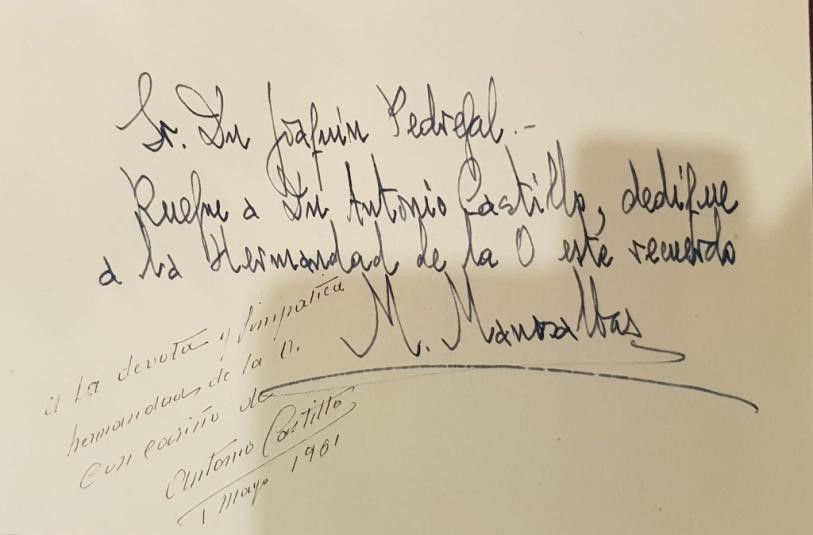 Sr. Dn Joaquín Pedregal.-
Ruegue a Dn Antonio Castillo, dedique
a la Hermandad de la O este recuerdo
M. Manosalbas
a la devota y simpatica
hermandad de la O.
con cariño de
Antonio Castillo
1 Mayo 1961